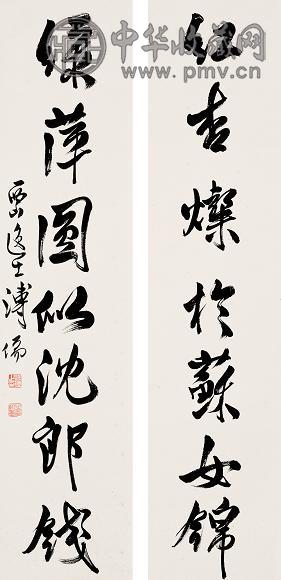 中华收藏网
www.pmv.cn
红杏燦於蘇女錦
绿萍圆似沈郎錢
西山逸士溥儒